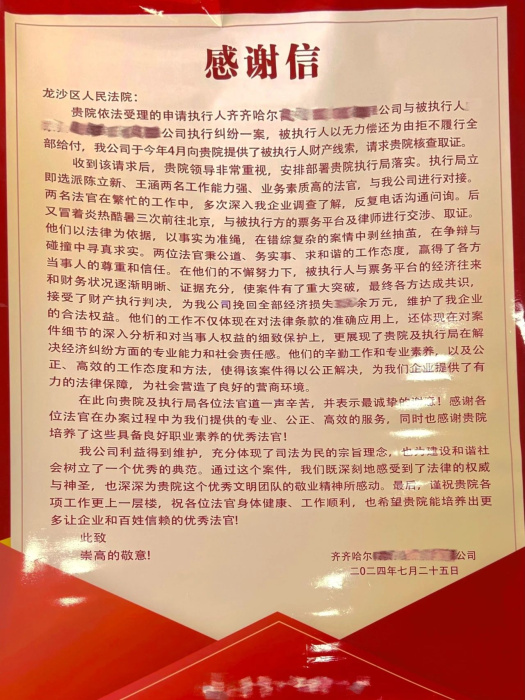 感谢信
龙沙区人民法院：
贵院依法受理的申请执行人齐齐哈尔 公司与被执行人
公司执行纠纷一案，被执行人以无力偿还为由拒不履行全
部给付，我公司于今年4月向贵院提供了被执行人财产线索，请求贵院核查取证。
收到该请求后，贵院领导非常重视，安排部署贵院执行局落实。执行局立
即选派陈立新、王涵两名工作能力强、业务素质高的法官，与我公司进行对接。
两名法官在繁忙的工作中，多次深入我企业调查了解，反复电话沟通问询。后
又冒着炎热酷暑三次前往北京，与被执行方的票务平台及律师进行交涉、取证。
他们以法律为依据，以事实为准绳，在错综复杂的案情中剥丝抽茧，在争辩与
碰撞中寻真求实。两位法官秉公道、务实事、求和谐的工作态度，赢得了各方
当事人的尊重和信任。在他们的不懈努力下，被执行人与票务平台的经济往来
和财务状况逐渐明晰、证据充分，使案件有了重大突破，最终各方达成共识，
接受了财产执行判决，为我公司挽回全部经济损失 余万元，维护了我企业
的合法权益。他们的工作不仅体现在对法律条款的准确应用上，还体现在对案
件细节的深入分析和对当事人权益的细致保护上，更展现了贵院及执行局在解
决经济纠纷方面的专业能力和社会责任感。他们的辛勤工作和专业素养，以及公
正、高效的工作态度和方法，使得该案件得以公正解决，为我们企业提供了有
力的法律保障，为社会营造了良好的营商环境。
在此向贵院及执行局各位法官道一声辛苦，并表示最诚挚的谢意！感谢各
位法官在办案过程中为我们提供的专业、公正、高效的服务，同时也感谢贵院
培养了这些具备良好职业素养的优秀法官！
我公司利益得到维护，充分体现了司法为民的宗旨理念，也为建设和谐社
会树立了一个优秀的典范。通过这个案件，我们既深刻地感受到了法律的权威
与神圣，也深深为贵院这个优秀文明团队的敬业精神所感动。最后，谨祝贵院各
项工作更上一层楼，祝各位法官身体健康、工作顺利，也希望贵院能培养出更
多让企业和百姓信赖的优秀法官！
此致
崇高的敬意！
齐齐哈尔 公司
二〇二四年七月二十五日